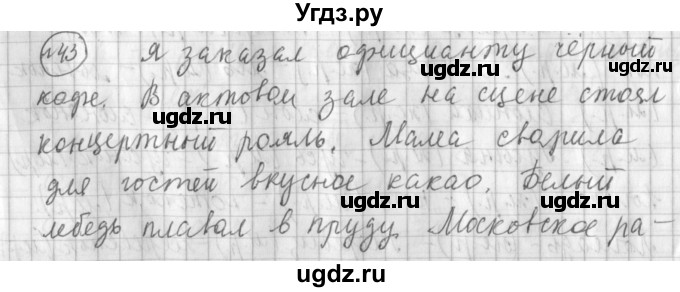 Угдз.ру
№43 Я заказал официанту чёрный
кофе. В актовом зале на сцене стоял
концертный рояль. Мама сварила
для гостей вкусное какао. Белый
лебедь плавал в пруду. Московское ра-
ugdz.ru
ugdz.ru
ugdz.ru
ugdz.ru
ugdz.ru
ugdz.ru
ugdz.ru
ugdz.ru